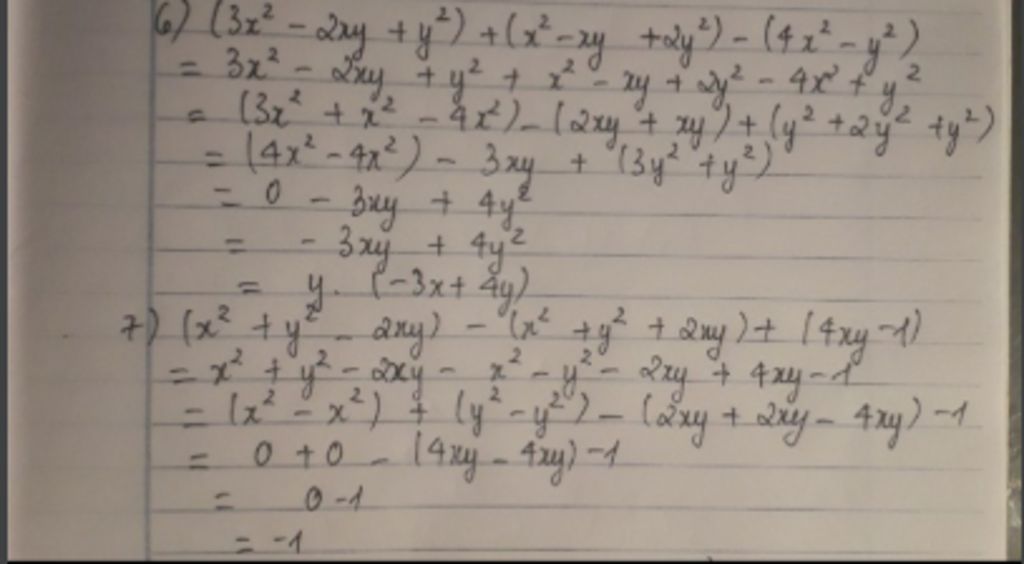 6) (3x² - 2xy + y²) + (x² - xy + 2y²) - (4x² - y²)
= 3x² - 2xy + y² + x² - xy + 2y² - 4x² + y²
= (3x² + x² - 4x²) - (2xy + xy) + (y² + 2y² + y²)
= (4x² - 4x²) - 3xy + (3y² + y²)
= 0 - 3xy + 4y²
= - 3xy + 4y²
= y. (-3x + 4y)
7) (x² + y² - 2xy) - (x² + y² + 2xy) + (4xy - 1)
= x² + y² - 2xy - x² - y² - 2xy + 4xy - 1
= (x² - x²) + (y² - y²) - (2xy + 2xy - 4xy) - 1
= 0 + 0 - (4xy - 4xy) - 1
= 0 - 1
= -1